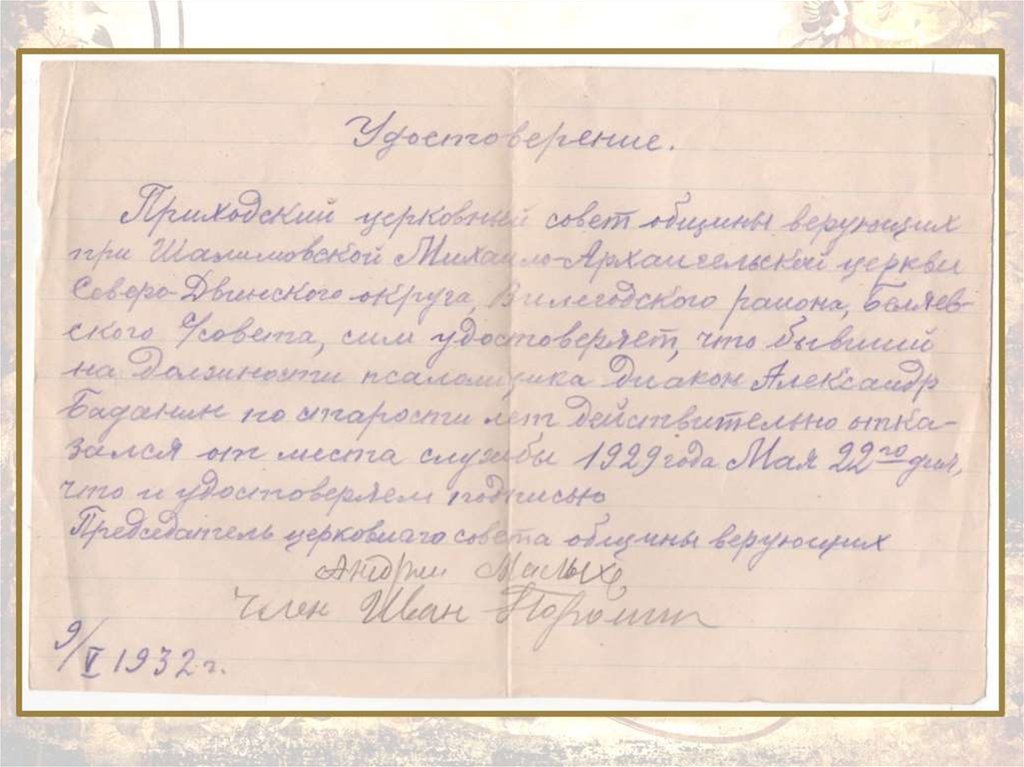 Удостоверение.
Приходский церковный совет общины верующих
при Шалимовской Михаило-Архангельской церкви
Северо-Двинского округа, Вилегодского района, Беляев-
ского С/совета, сим удостоверяет, что бывший
на должности псаломщика диакон Александр
Баданин по старости лет действительно отка-
зался от места службы 1929 года Мая 22го дня,
что и удостоверяем подписью
Председатель церковного совета общины верующих
Андрей Малых
Член Иван
9/V 1932 г.